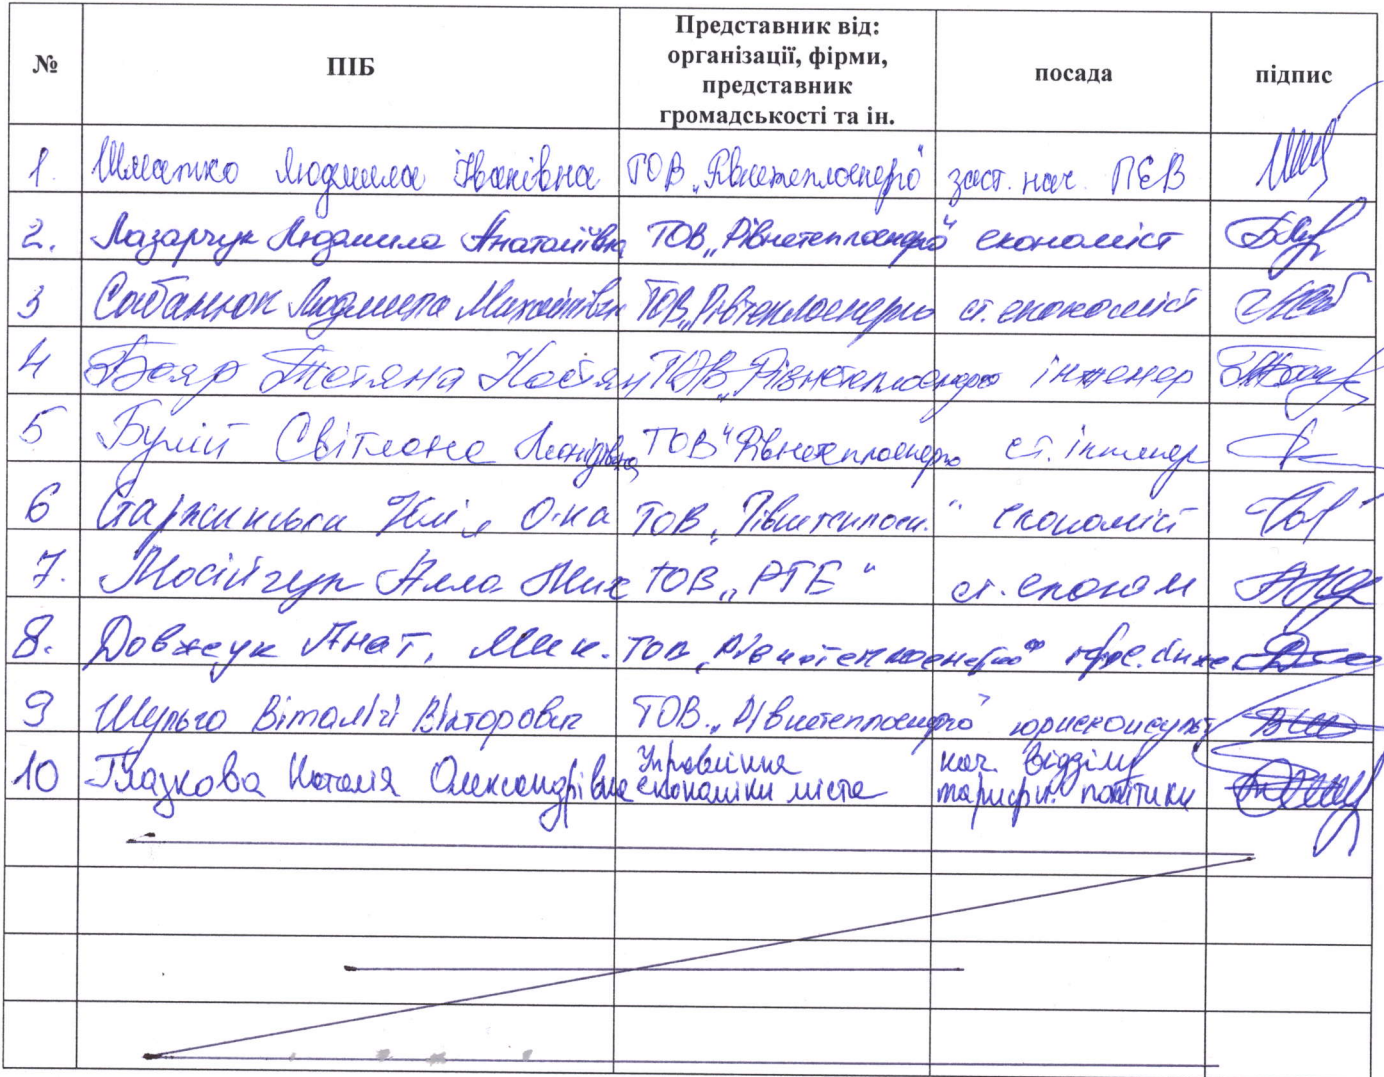 № ПІБ Представник від: організації, фірми, представник громадськості та ін. посада підпис
1. Шматко Людмила Іванівна ТОВ „Рівнетеплоенерго" заст. нач. ПЕВ
2. Лазарчук Людмила Анатоліївна ТОВ „Рівнетеплоенерго" економіст
3 Людмила Михайлівн ТОВ „Рівтеплоенерго ст. економіст
4 Бояр Тетяна Костян ТОВ „Рівнетеплоенерго інженер
5 Буліп Світлана Леонідівна ТОВ "Рівнетеплоенерго ст. інженер
6 Старжинська Юлія О-на ТОВ „Рівнетеплоен." економіст
7. Мосійчук Алла Мик ТОВ „РТЕ" ст. економ
8. Довжук Анат. Мик. ТОВ „Рівнетеплоенерго"
9 Шульга Віталій Вікторович ТОВ „Рівнетеплоенерго" юрисконсульт
10 Глазкова Наталія Олександрівна Управління економіки міста нач. відділу тарифн. політики